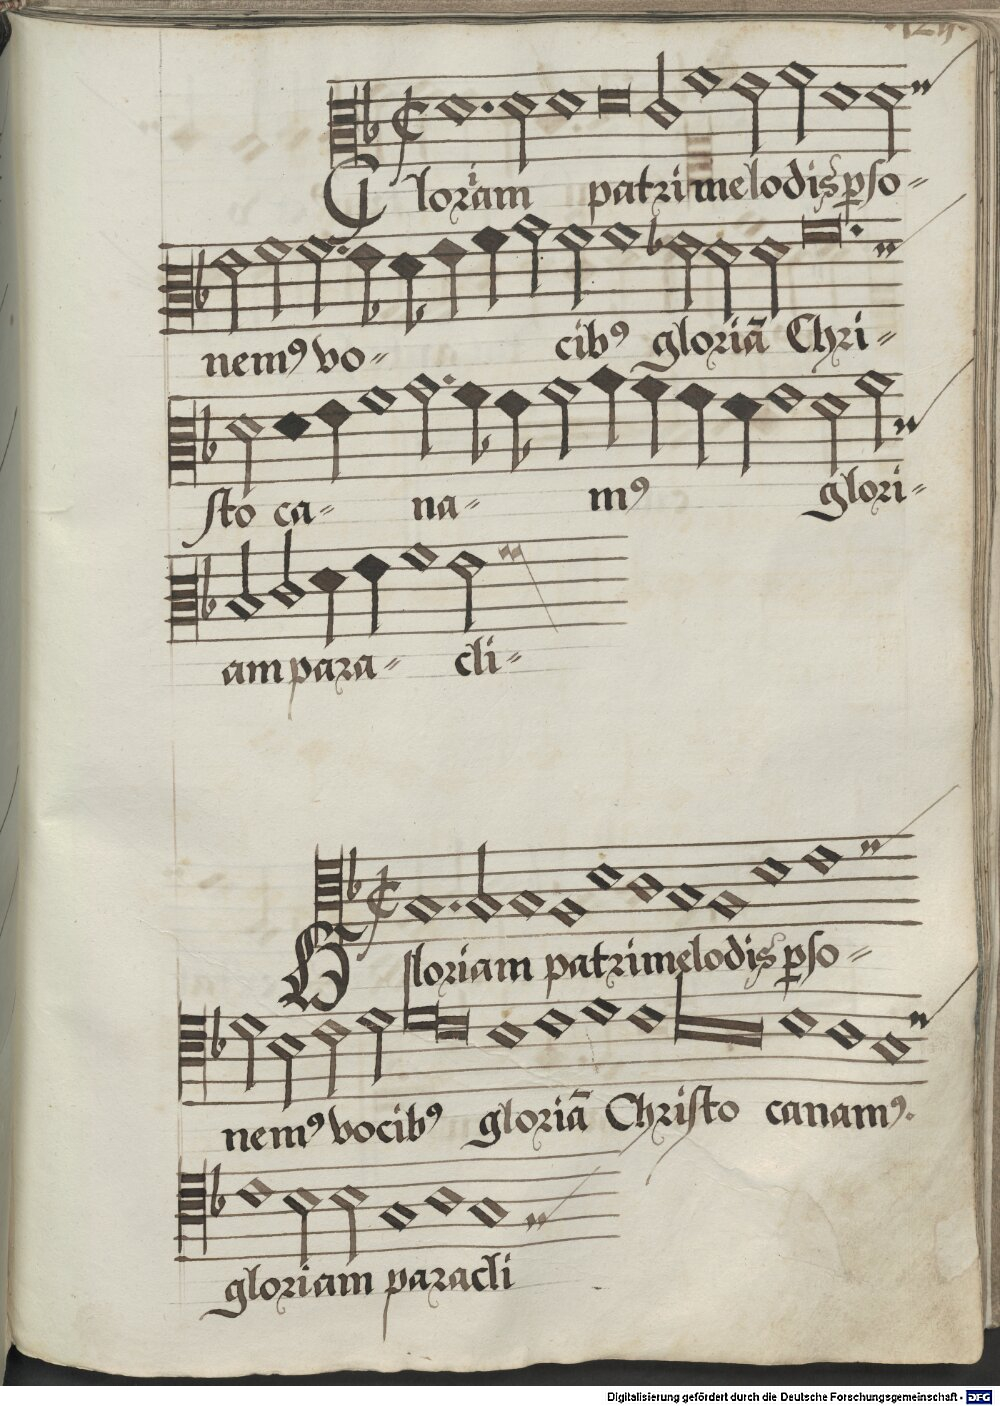 Gloriam patri melodis pso=
nemꝰ vo= cibꝰ gloriā Chri=
sto ca= na= mꝰ glori=
am para= cli=
Gloriam patri melodis pso=
nemꝰ vocibꝰ gloriā Christo canamꝰ.
gloriam paracli
Digitalisierung gefördert durch die Deutsche Forschungsgemeinschaft - DFG